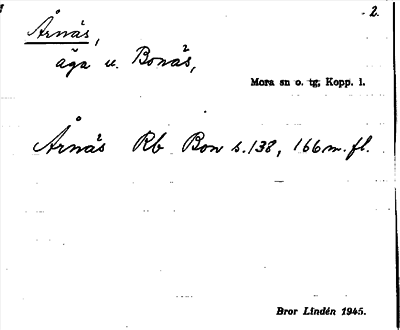 - 2.
Årnäs,
äga u. Bonäs,
Mora sn o. tg, Kopp. l.
Årnäs Rb Bon s. 138, 166 m. fl.
Bror Lindén 1945.